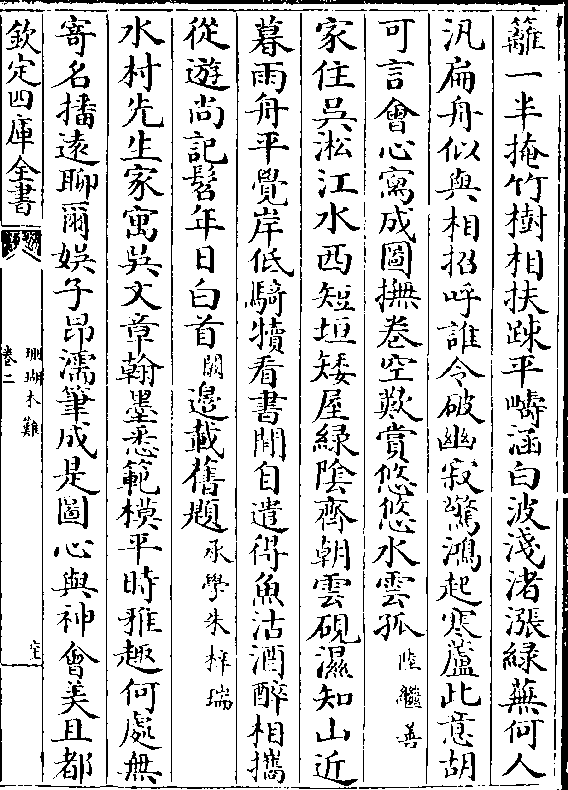 籬一半掩竹樹相扶踈平疇涵白波淺渚漲緑蕪何人
汎扁舟似與相招呼誰令破幽寂驚鴻起寒蘆此意胡
可言會心寫成圖撫巻空歎賞悠悠水雲孤陸繼善
家住吳淞江水西短垣矮屋緑陰齊朝雲硯濕知山近
暮雨舟平覺岸低騎犢看書閒自遣得魚沽酒醉相攜
從遊尚記髫年日白首闕邉載舊題承學朱梓瑞
水村先生家寓吳文章翰墨悉範模平時雅趣何處無
寄名播逺聊爾娯子昂濡筆成是圖心與神會美且都
欽定四庫全書
珊瑚木難
卷二